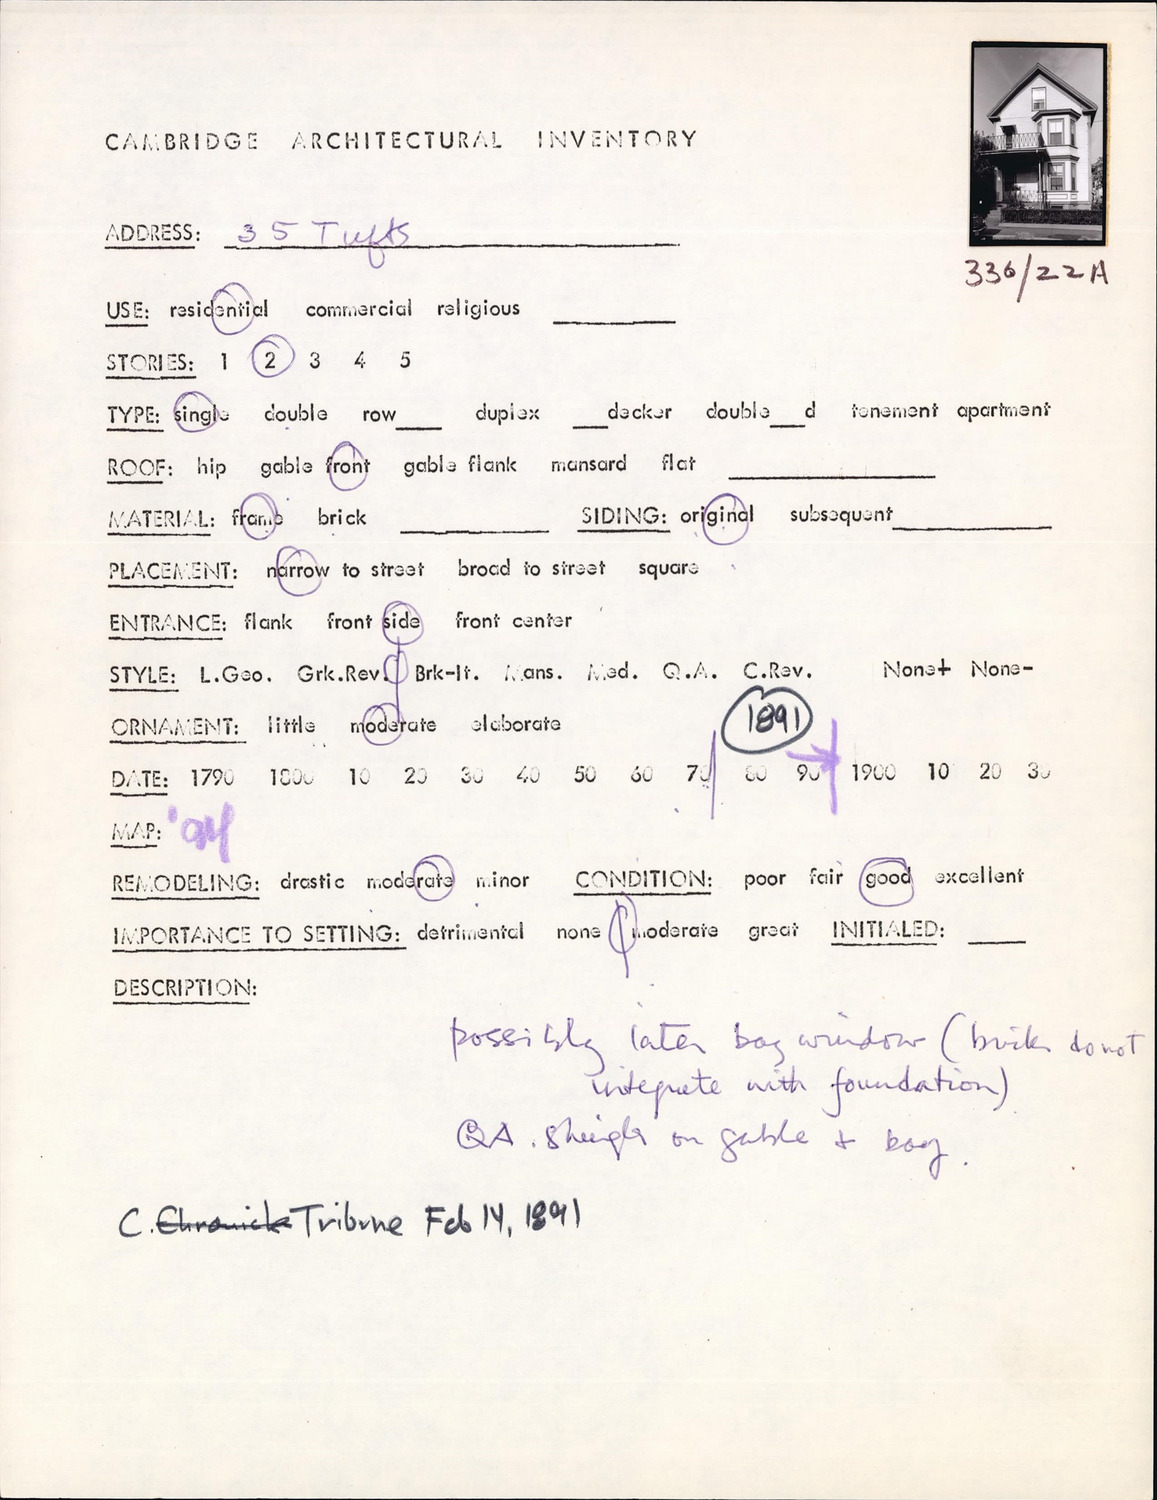 CAMBRIDGE ARCHITECTURAL INVENTORY
336/22A
ADDRESS: 35 Tufts
USE: residential commercial religious
STORIES: 1 2 3 4 5
TYPE: single double row___ duplex ___decker double___d tenement apartment
ROOF: hip gable front gable flank mansard flat
MATERIAL: frame brick SIDING: original subsequent
PLACEMENT: narrow to street broad to street square
ENTRANCE: flank front side front center
STYLE: L.Geo. Grk.Rev. Brk-It. Mans. Med. Q.A. C.Rev. None+ None-
ORNAMENT: little moderate elaborate 1891
DATE: 1790 1800 10 20 30 40 50 60 70 80 90 1900 10 20 30
MAP: '94
REMODELING: drastic moderate minor CONDITION: poor fair good excellent
IMPORTANCE TO SETTING: detrimental none moderate great INITIALED:
DESCRIPTION:
possibly later bay window (bricks do not
integrate with foundation)
QA. Shingles on gable + bay.
C. Chronicle Tribune Feb 14, 1891